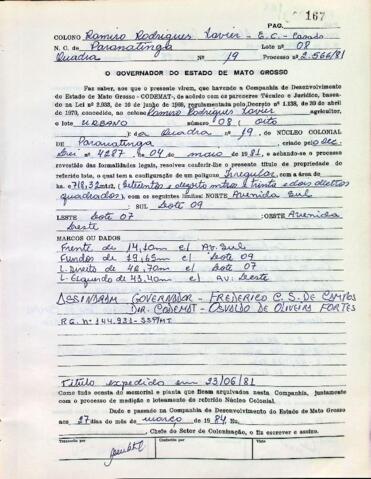 167
PAG.
COLONO Ramiro Rodrigues Xavier - E.C - Casado
N. C. de Paranatinga Lote nº 08
Quadra Nº 19 Processo nº 2.566/81
O GOVERNADOR DO ESTADO DE MATO GROSSO
Faz saber, aos que a presente virem, que havendo a Companhia de Desenvolvimento
do Estado de Mato Grosso - CODEMAT-, de acordo com os pareceres Técnico e Jurídico, basea-
do na Lei nº 2.933, de 19 de junho de 1969, regulamentada pelo Decreto nº 1.138, de 30 de abril
de 1970, concedido ao colono Ramiro Rodrigues Xavier agricultor,
o lote URBANO número 08( Oito
) da Quadra nº 19. do NÚCLEO COLONIAL
DE Paranatinga criado pelo
Lei nº 4287 de 04 de maio de 1981, e achando-se o processo
revestido das formalidades legais, resolveu conferir-lhe o presente título de propriedade do
referido lote, o qual tem a configuração de um polígono Irregular com a área de
hs. 718,32mt2, (Setecentos e dezoito metros e trinta e dois
quadrados), com os seguintes limites: NORTE Avenida Sul
SUL Lote 09
LESTE Lote 07 OESTE Avenida
Leste
MARCOS OU DADOS
Frente de 14,10m c/ Av. Sul
Fundos de 19,65m c/ Lote 09
L. Direito de 42,70m c/ Lote 07
L. Esquerdo de 43,40m c/ Av: Leste
ASSINARAM GOVERNADOR - FREDERICO C. S. DE CAMPOS
DIR. CODEMAT - OSVALDO DE OLIVEIRA FORTES
R.G. nº 144.931-SSPMT.
Título expedido em 23/06/81
Como tudo consta do memorial e planta que ficam arquivados nesta Companhia, juntamente
com o processo de medição e loteamento do referido Núcleo Colonial.
Dado e passado na Companhia de Desenvolvimento do Estado de Mato Grosso
aos 27 dias do mês de março de 1984 Eu,
, Chefe do Setor de Colonização, o fiz escrever e assino.
Transcrito por
Conferido por
Visto